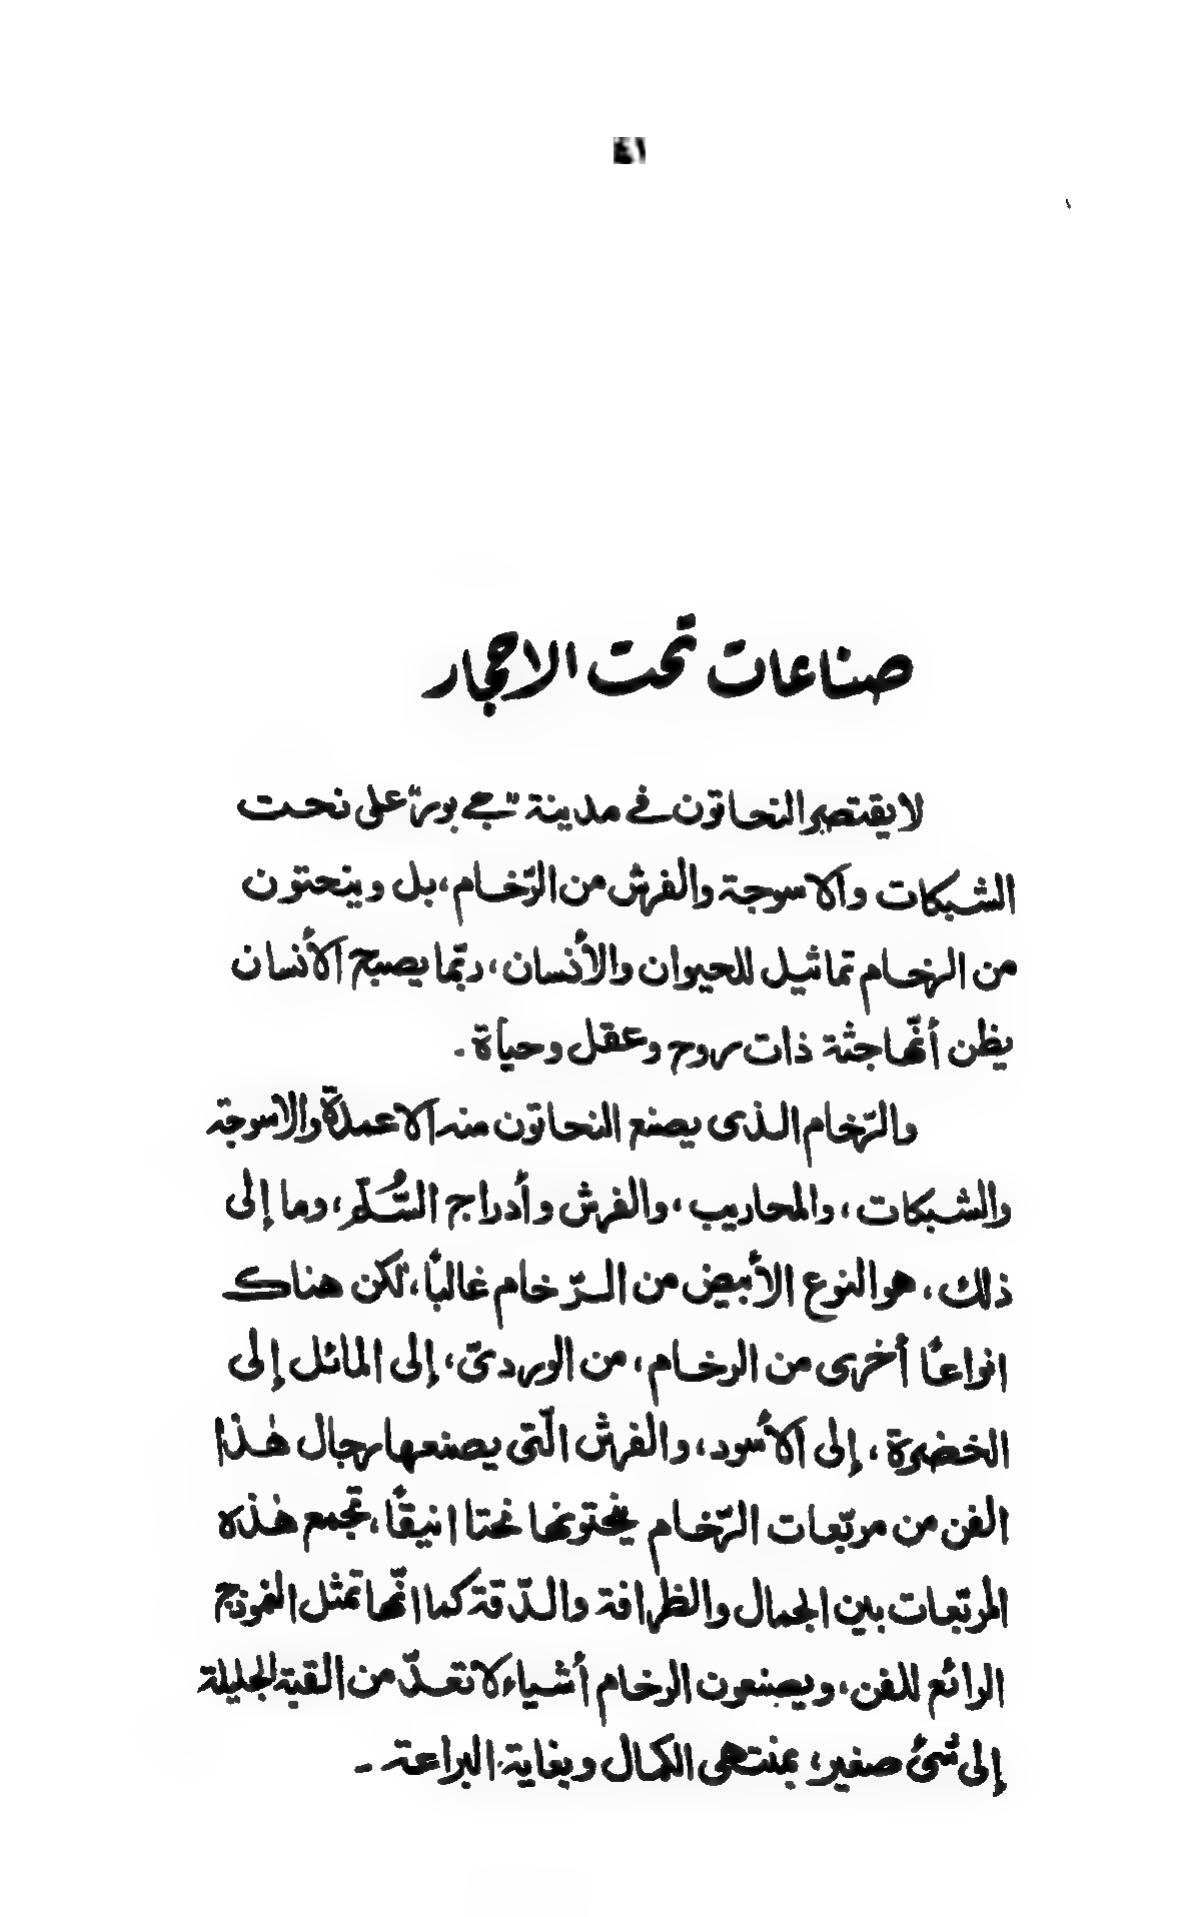 صناعات تحت الاحجار
لا يقتصر النحاتون في مدينة "جے بور" على نحت
الشبكات والاسوجة والفرش من الرّخام، بل وينحتون
من الرخام تماثيل للحيوان والأنسان، ربّما يصبح الأنسان
يظن أنّها جثة ذات روح وعقل وحيأة .
والرّخام الذى يصنع النحاتون منه الاعمدة والاسوجة
والشبكات، والمحاريب، والفرش وأدراج السُّلّم، وما إلى
ذلك، هو النوع الأبيض من الرّخام غالبًا، لكن هناك
انواعًا أخرى من الرخام، من الوردىّ، إلى المائل إلى
الخضرة، إلى الأسود، والفرش الّتى يصنعها رجال هٰذا
الفن من مربّعات الرّخام ينحتونها نحتا انيقًا، تجمع هٰذه
المربّعات بين الجمال والظرافة والدّقة كما انّها تمثل النموذج
الرائع للفن، ويصنعون الرخام أشياء لا تعدّ من القبة الجليلة
إلى شئ صغير، بمنتهى الكمال وبغاية البراعة -